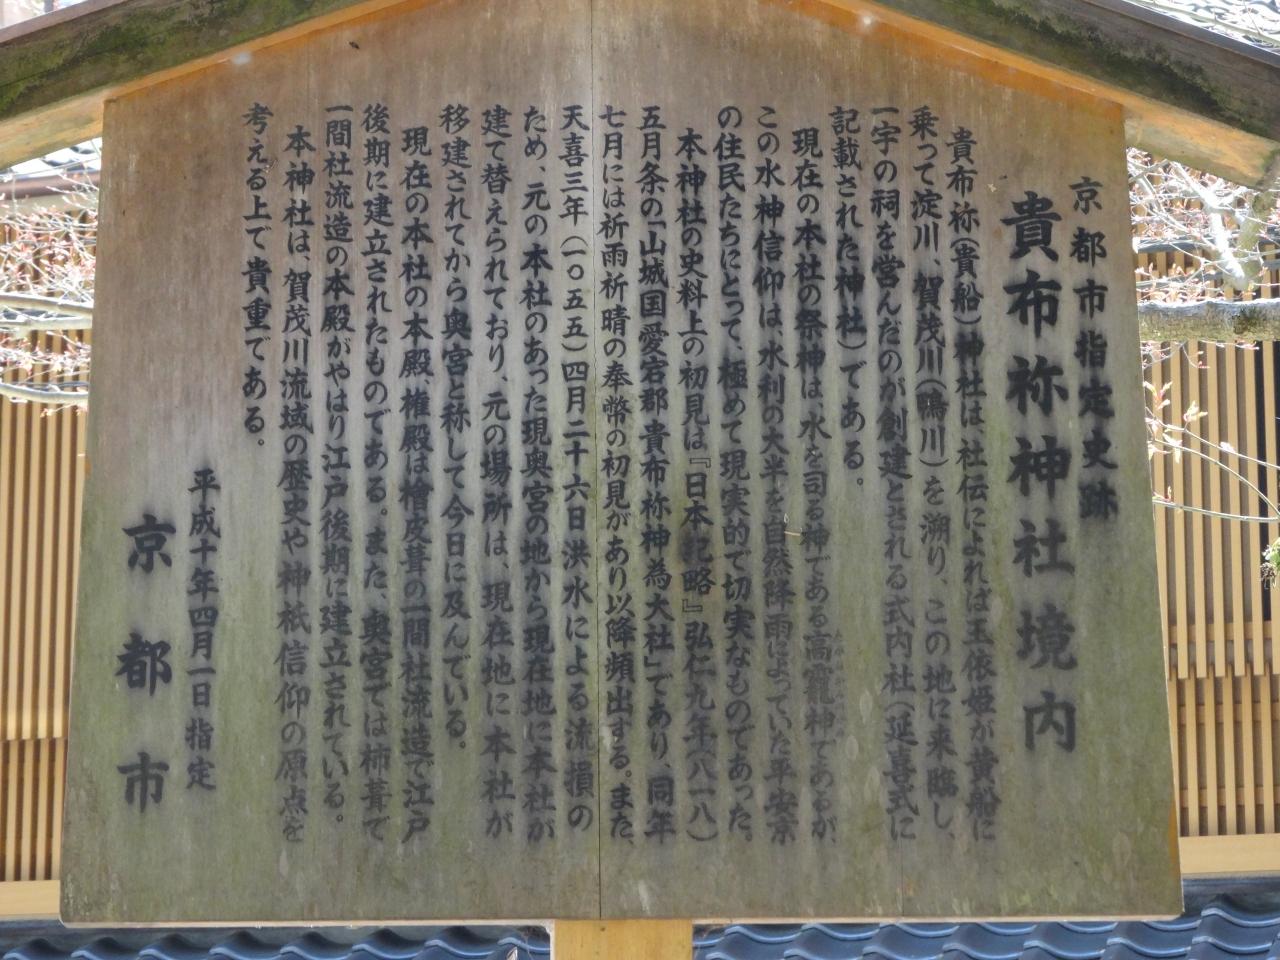 京都市指定史跡
貴布祢神社境内
貴布祢(貴船)神社は、社伝によれば玉依姫が黄船に
乗って淀川、賀茂川(鴨川)を溯り、この地に来臨し、
一宇の祠を営んだのが創建とされる式内社(延喜式に
記載された神社)である。
現在の本社の祭神は水を司る神である高龗神であるが、
この水神信仰は、水利の大半を自然降雨によっていた平安京
の住民たちにとって、極めて現実的で切実なものであった。
本神社の史料上の初見は『日本紀略』弘仁九年(八一八)
五月条の「山城国愛宕郡貴布祢神為大社」であり、同年
七月には祈雨祈晴の奉幣の初見があり以降頻出する。また、
天喜三年(一〇五五)四月二十六日洪水による流損の
ため、元の本社のあった現奥宮の地から現在地に本社が
建て替えられており、元の場所は、現在地に本社が
移建されてから奥宮と称して今日に及んでいる。
現在の本社の本殿、権殿は檜皮葺の一間社流造で江戸
後期に建立されたものである。また、奥宮では柿葺で
一間社流造の本殿がやはり江戸後期に建立されている。
本神社は、賀茂川流域の歴史や神祇信仰の原点を
考える上で貴重である。
平成十年四月一日指定
京都市